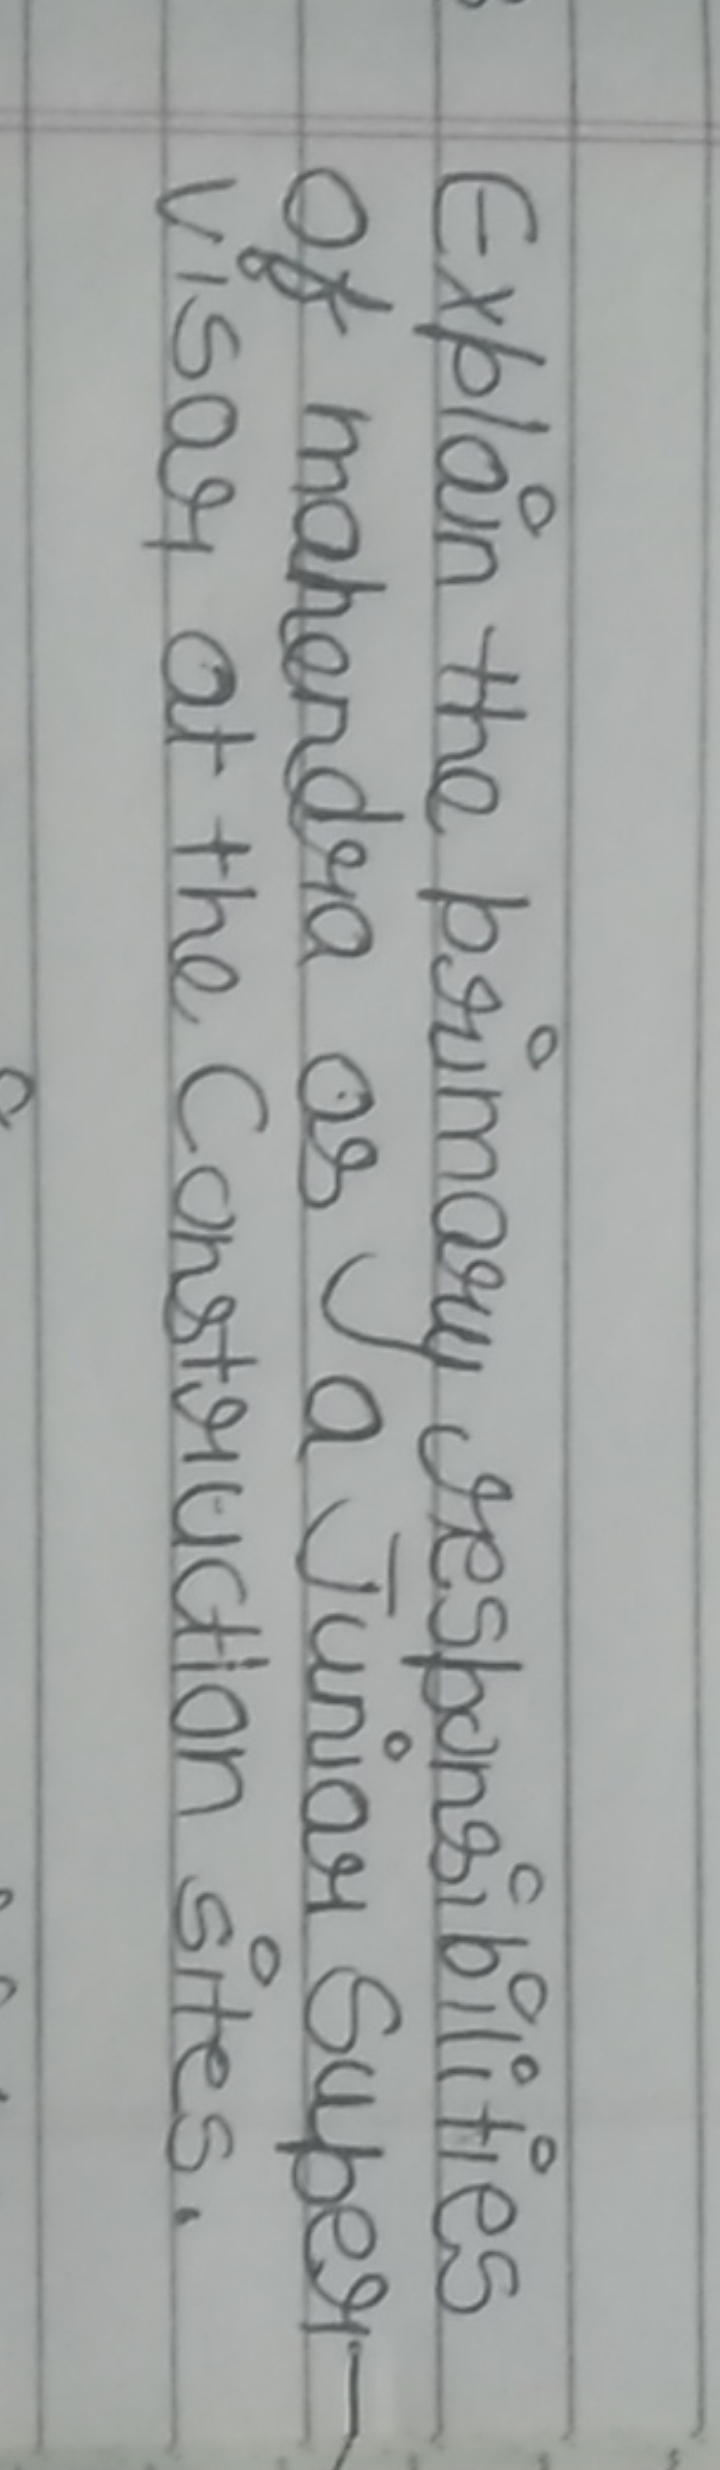 Explain the primary responsibilities
Of mahendra as a Junior Super-
visor at the Construction sites.